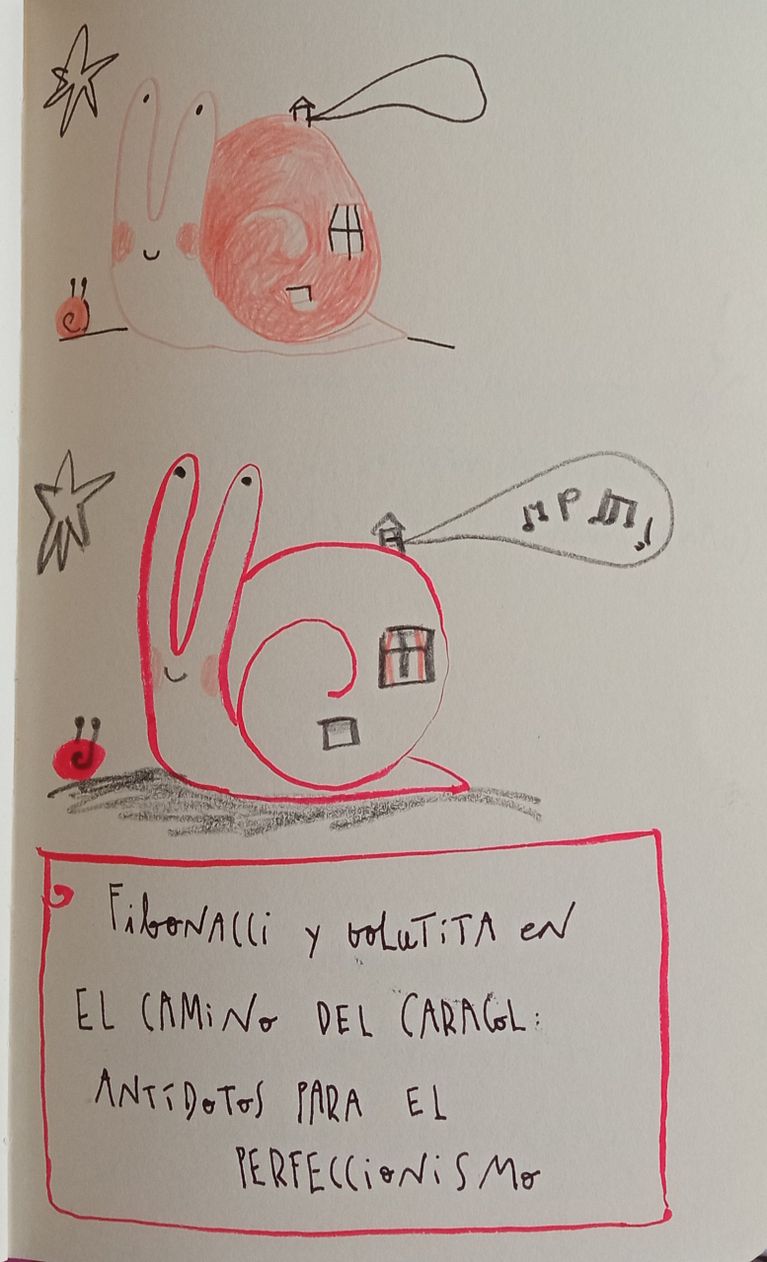 FiboNAcci y voLuTiTA eN
EL CAMiNo DEL CARAGoL:
ANTíDoToS PARA EL
PERFECCioNiSMo